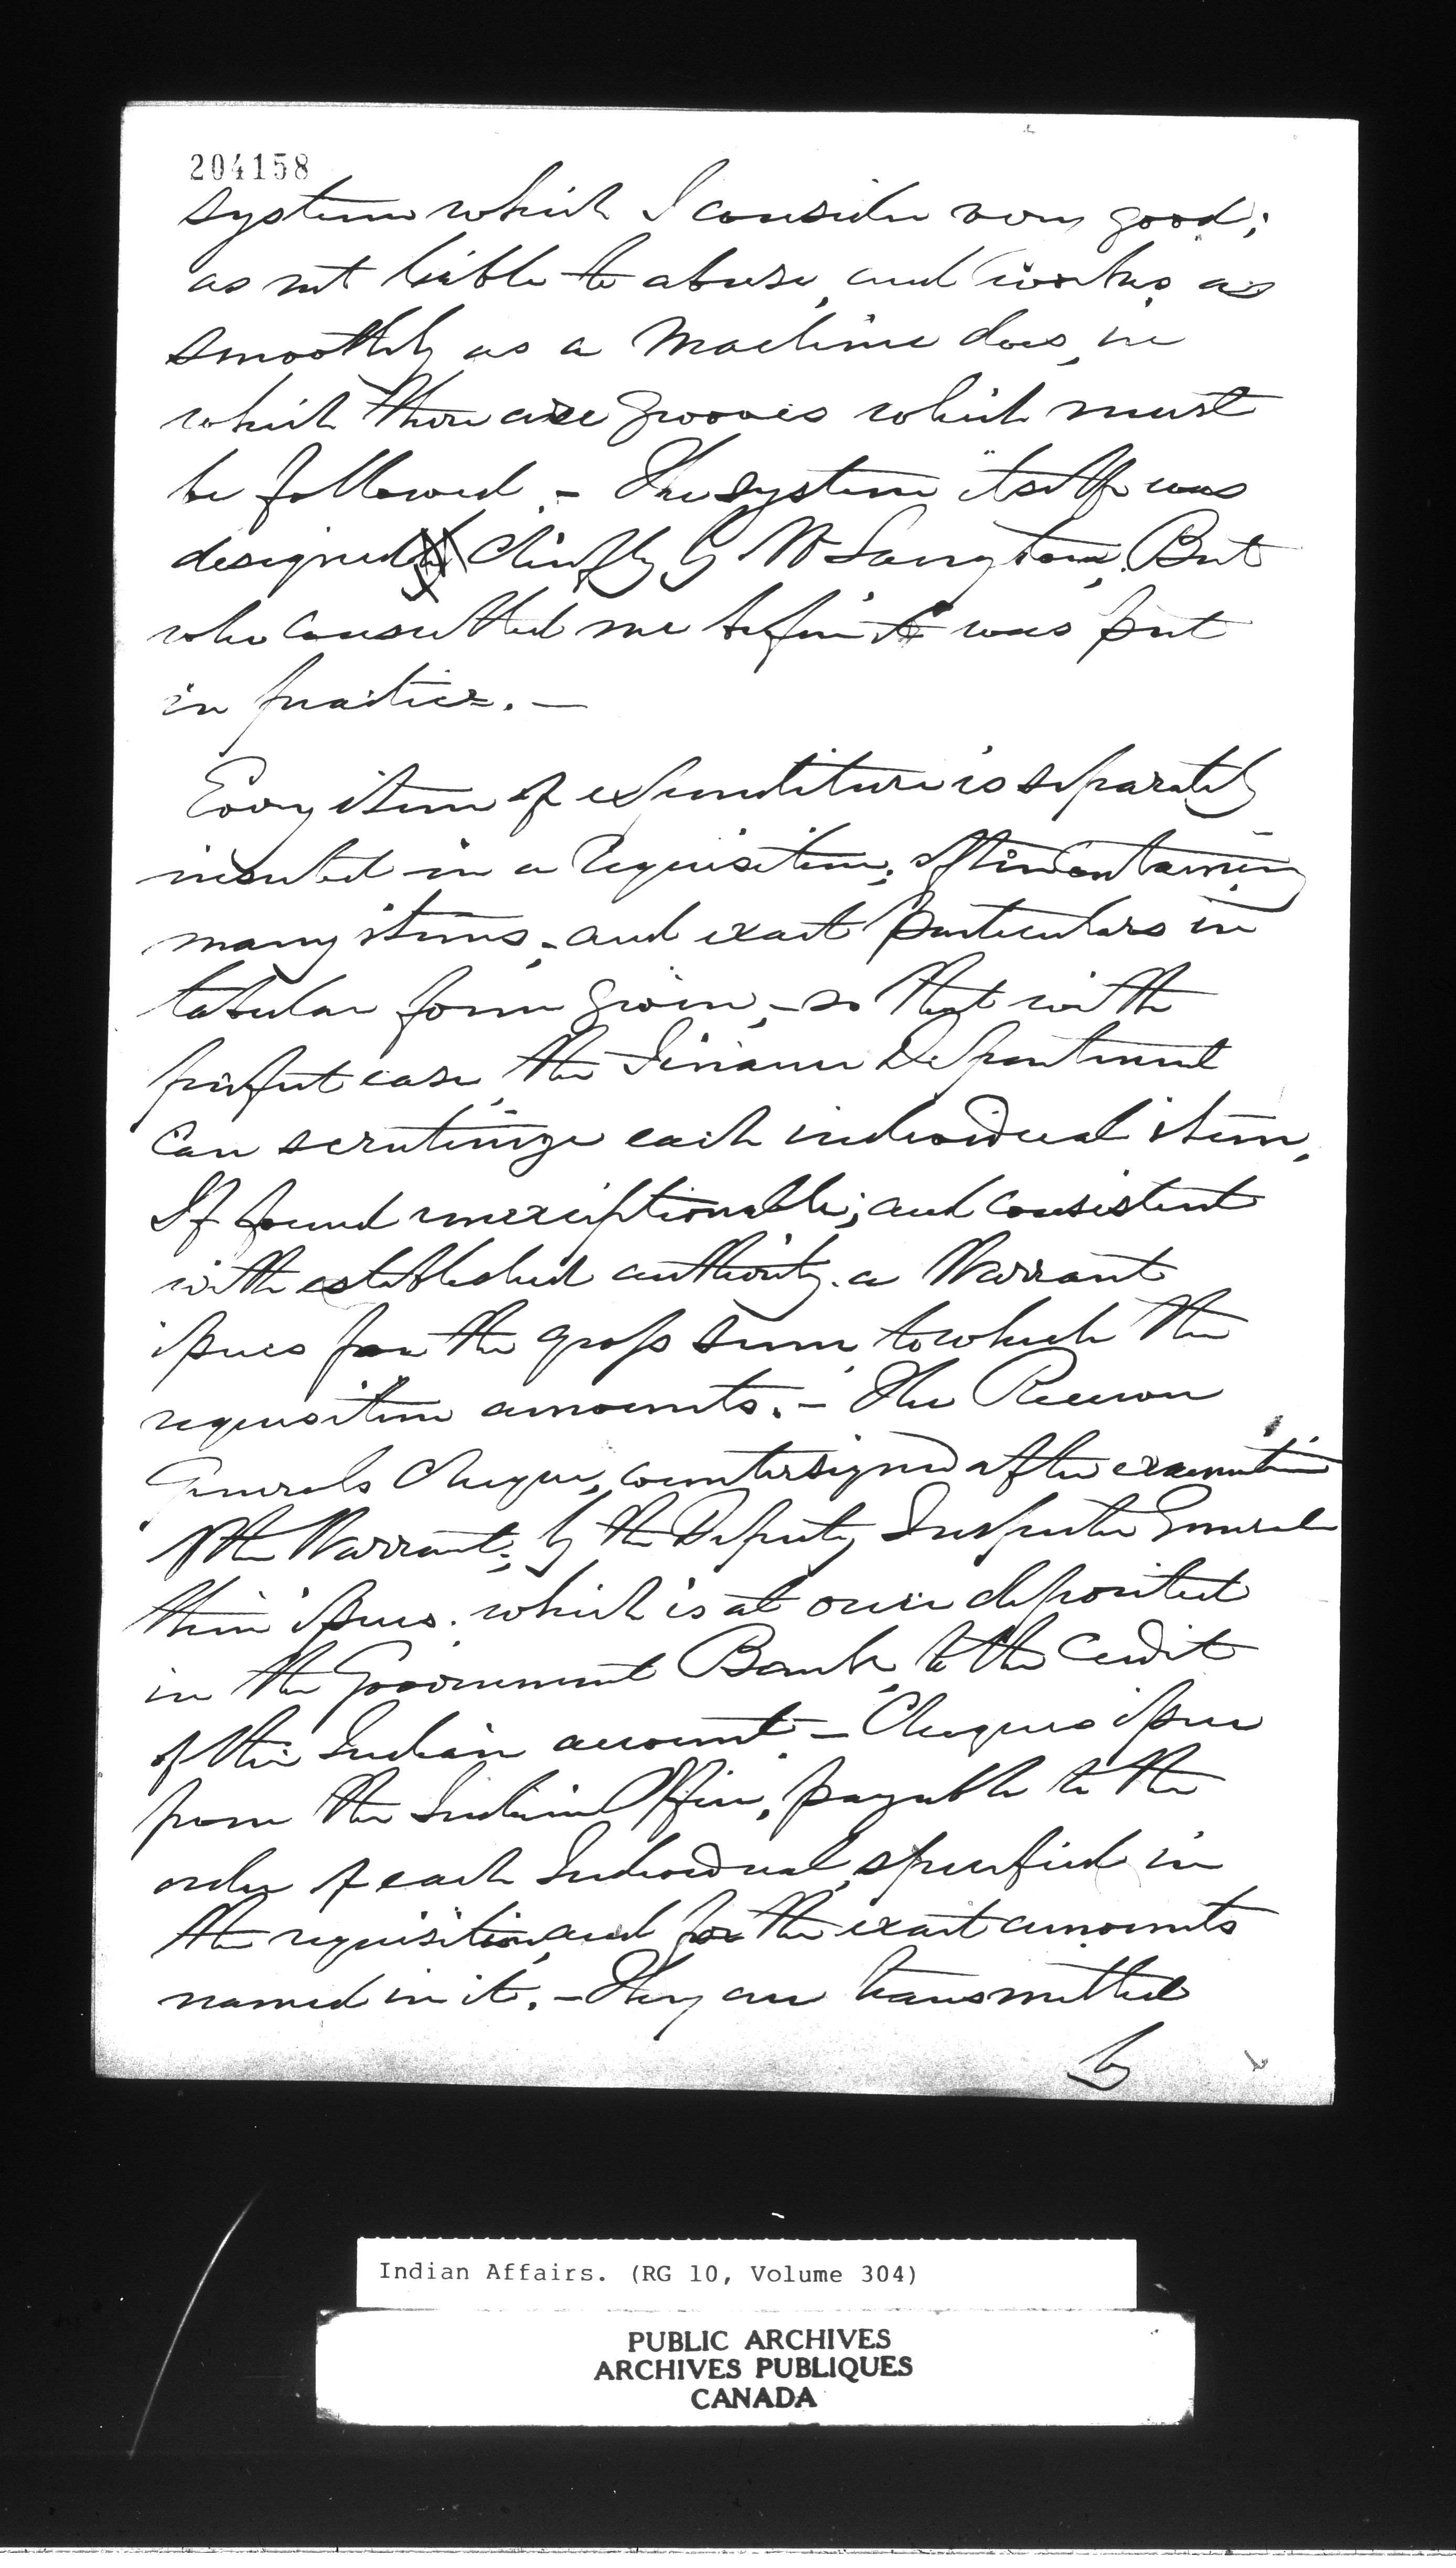 204158
system which I consider very good;
as not liable to abuse, and works as
smoothly as a Machine does, in
which there are grooves which must
be followed. - The system itself was
designed chiefly by Mr Langton, But
who consulted me before it was put
in practice. -
Every item of expenditure is separately
inserted in a requisition; often containing
many items; - and exact particulars in
tabular form given, - so that with
perfect ease, the Finance Department
can scrutinize each individual item.
If found unexceptionable; and consistent
with established authority. a Warrant
issues for the gross sum, to which the
requisition amounts. - The Receiver
Generals Cheque, countersigned after examination
of the Warrant; by the Deputy Inspector General
then issues. which is at once deposited
in the Government Bank, to the credit
of the Indian account - Cheques issue
from the Indian Office, payable to the
order of each Individual, specified in
the requisition, and for the exact amounts
named in it. - They are transmitted
by
Indian Affairs. (RG 10, Volume 304)
PUBLIC ARCHIVES
ARCHIVES PUBLIQUES
CANADA